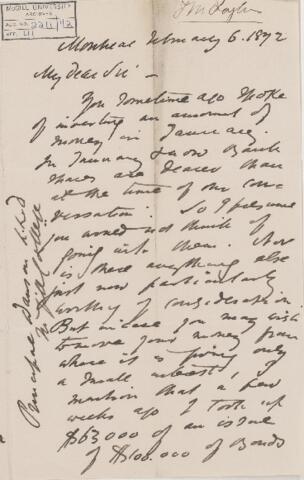 McGILL UNIVERSITY
ARCHIVES
ACC. NO. 2211/42
REF. 
Montreal February 6. 1872
My dear Sir -
You sometime ago spoke
of investing an amount of
money in January.
In January & now Bank
shares are dearer than
at the time of our con-
versation. So I presume
you would not think of
going into them. Nor
is there anything else
just now particularly
worthy of consideration
But in case you may wish
to move your money from
where it is giving only
a small interest, I
mention that a few
weeks ago I took up
$63.000 of an issue
of $100.000 of Bonds
Principal Dawson L.L.D
McGill College